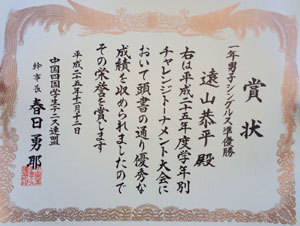 賞状
一年男子シングルス準優勝
遠山恭平殿
右は平成二十五年度学年別
チャレンジトーナメント大会に
おいて頭書の通り優秀な
成績を収められましたので
その栄誉を賞します
平成二十五年十月十二日
中国四国学生テニス連盟
幹事長 春日勇那